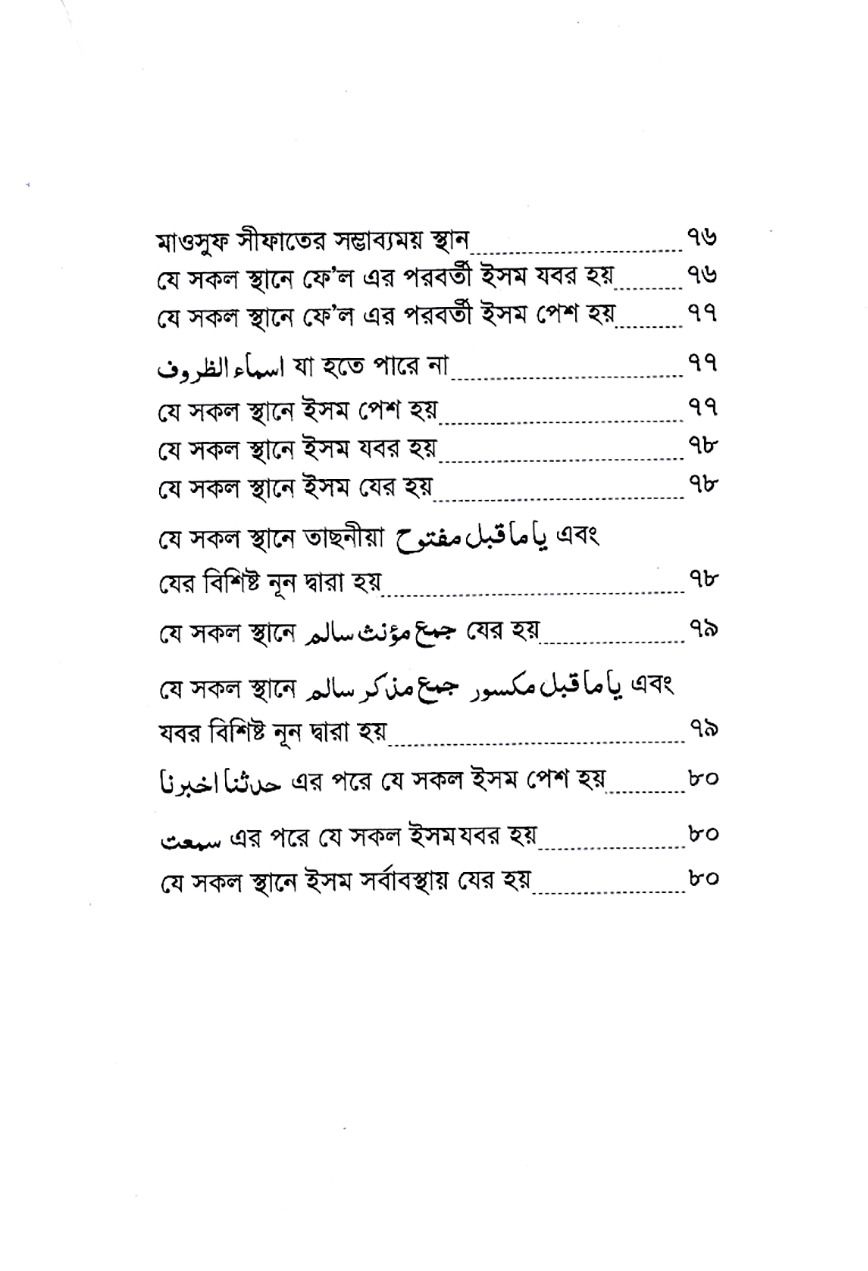 মাওসুফ সীফাতের সম্ভাব্যময় স্থান ৭৬
যে সকল স্থানে ফে'ল এর পরবর্তী ইসম যবর হয় ৭৬
যে সকল স্থানে ফে'ল এর পরবর্তী ইসম পেশ হয় ৭৭
اسماء الظروف যা হতে পারে না ৭৭
যে সকল স্থানে ইসম পেশ হয় ৭৭
যে সকল স্থানে ইসম যবর হয় ৭৮
যে সকল স্থানে ইসম যের হয় ৭৮
যে সকল স্থানে তাছনীয়া یا ما قبل مفتوح এবং
যের বিশিষ্ট নূন দ্বারা হয় ৭৮
যে সকল স্থানে جمع مؤنث سالم যের হয় ৭৯
যে সকল স্থানে جمع مذكر سالم یا ما قبل مكسور এবং
যবর বিশিষ্ট নূন দ্বারা হয় ৭৯
حدثنا اخبرنا এর পরে যে সকল ইসম পেশ হয় ৮০
سمعت এর পরে যে সকল ইসম যবর হয় ৮০
যে সকল স্থানে ইসম সর্বাবস্থায় যের হয় ৮০